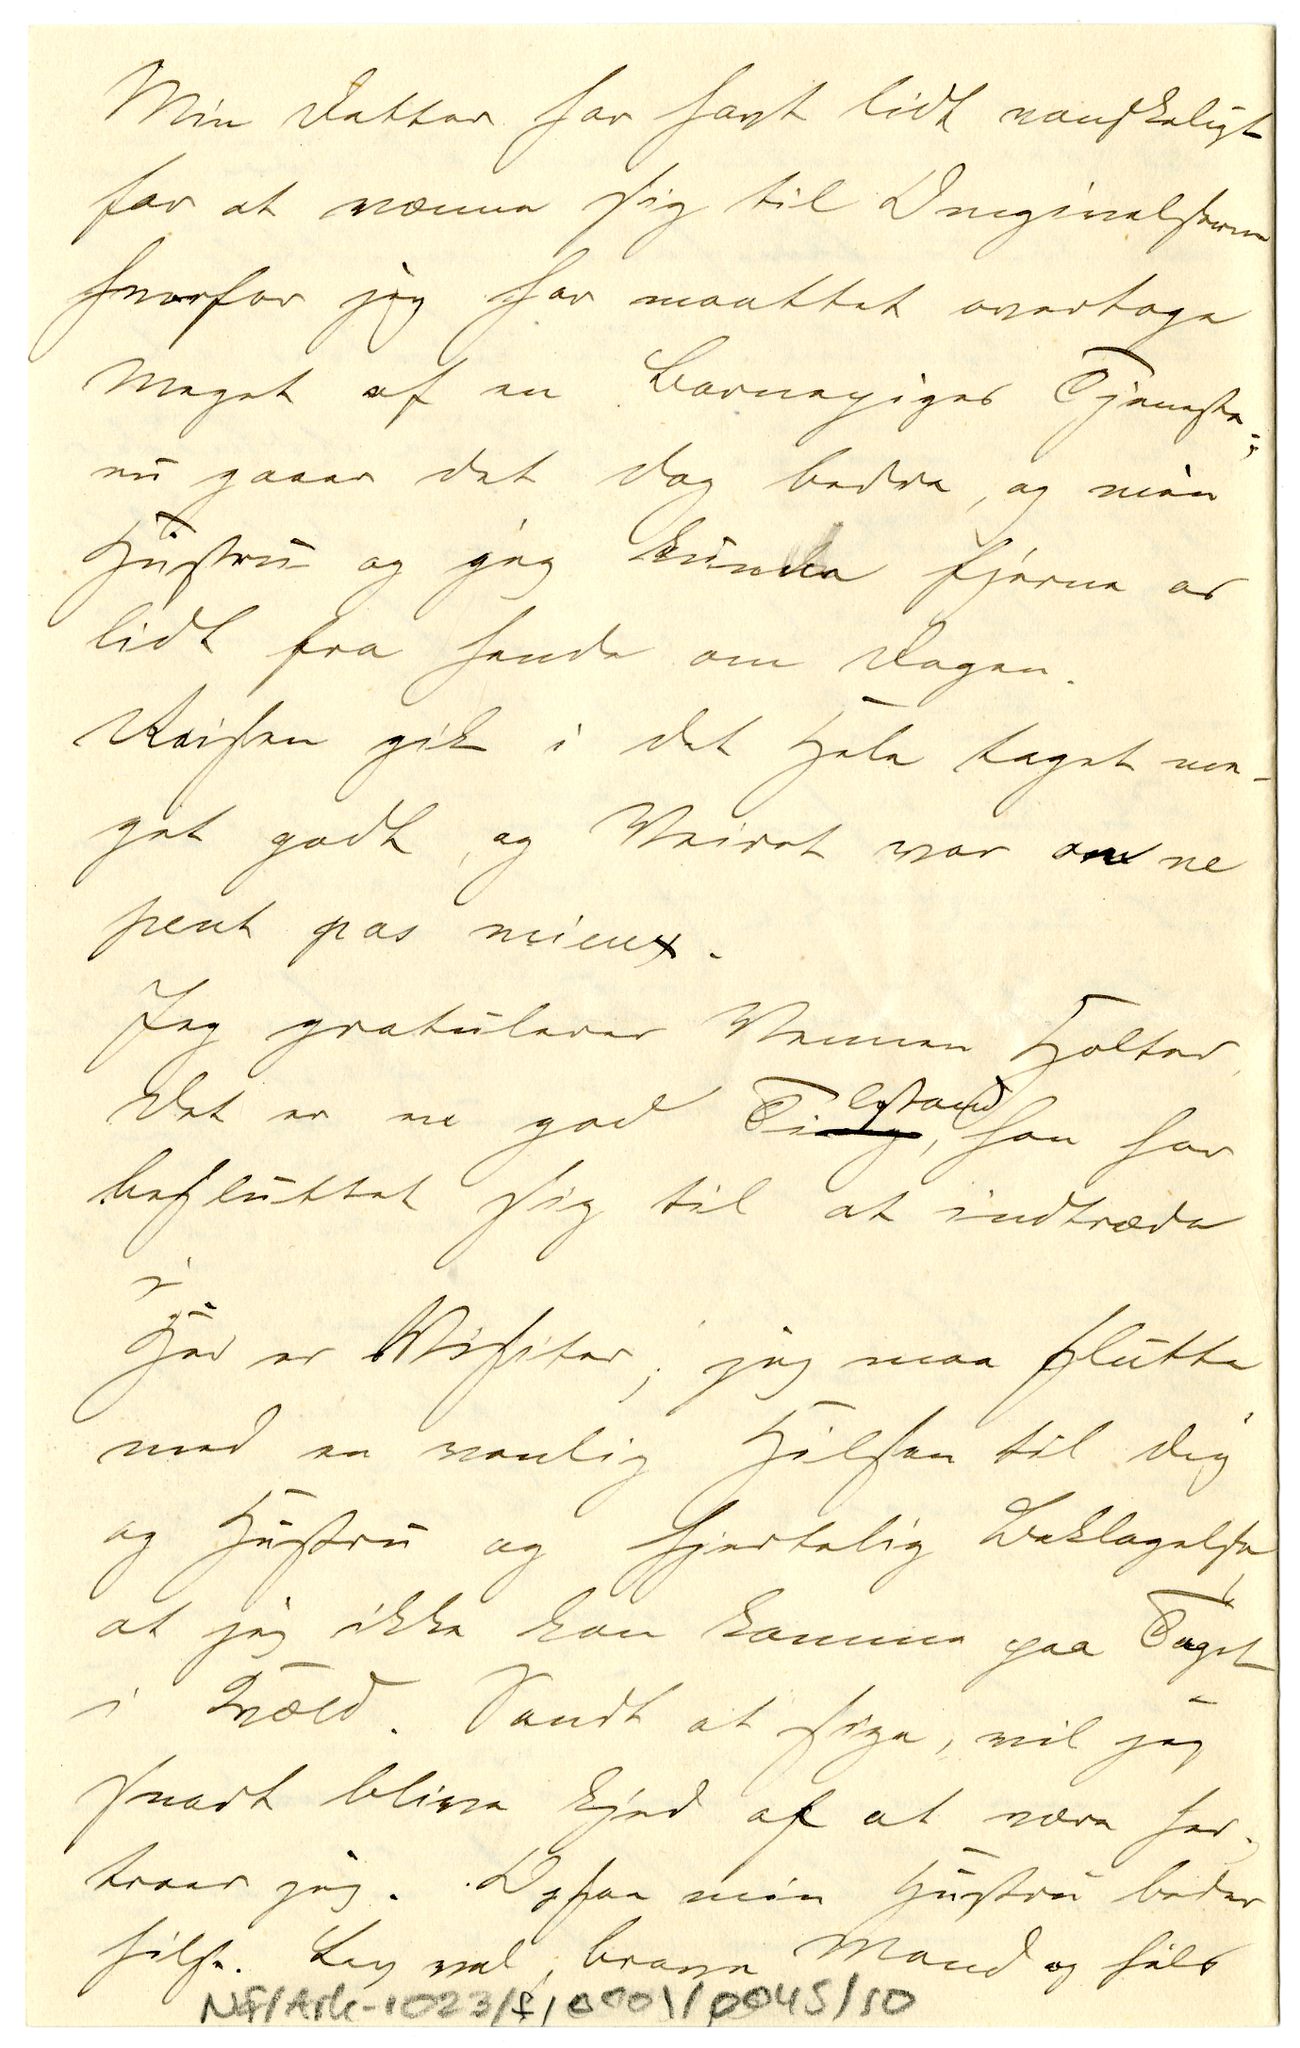 Min Datter har havt lidt vanskeligt
for at vænne sig til
hvorfor jeg har maattet overtage
meget af en Barnepiges Tjeneste;
nu gaaer det dog bedre, og min
Hustru og jeg kunne fjerne os
lidt fra hende om Dagen.
Reisen gik i det Hele taget me-
get godt, og Veiret var on ne
peut pas mieux.
Jeg gratulerer Vennen Holter,
Det er en god Tilstand, han har
besluttet sig til at indtræde
i
Her er Visiter; jeg maa slutte
med en venlig Hilsen til dig
og Hustru og hjertelig Beklagelse,
at jeg ikke kan komme paa Toget
i Kvæld. Sandt at sige, vil jeg
snart blive kjed af at være her,
troer jeg. Ogsaa min Hustru beder
hilse. Lev vel, brave Mand og hils
NG/Ark-1023/f/0001/0045/10